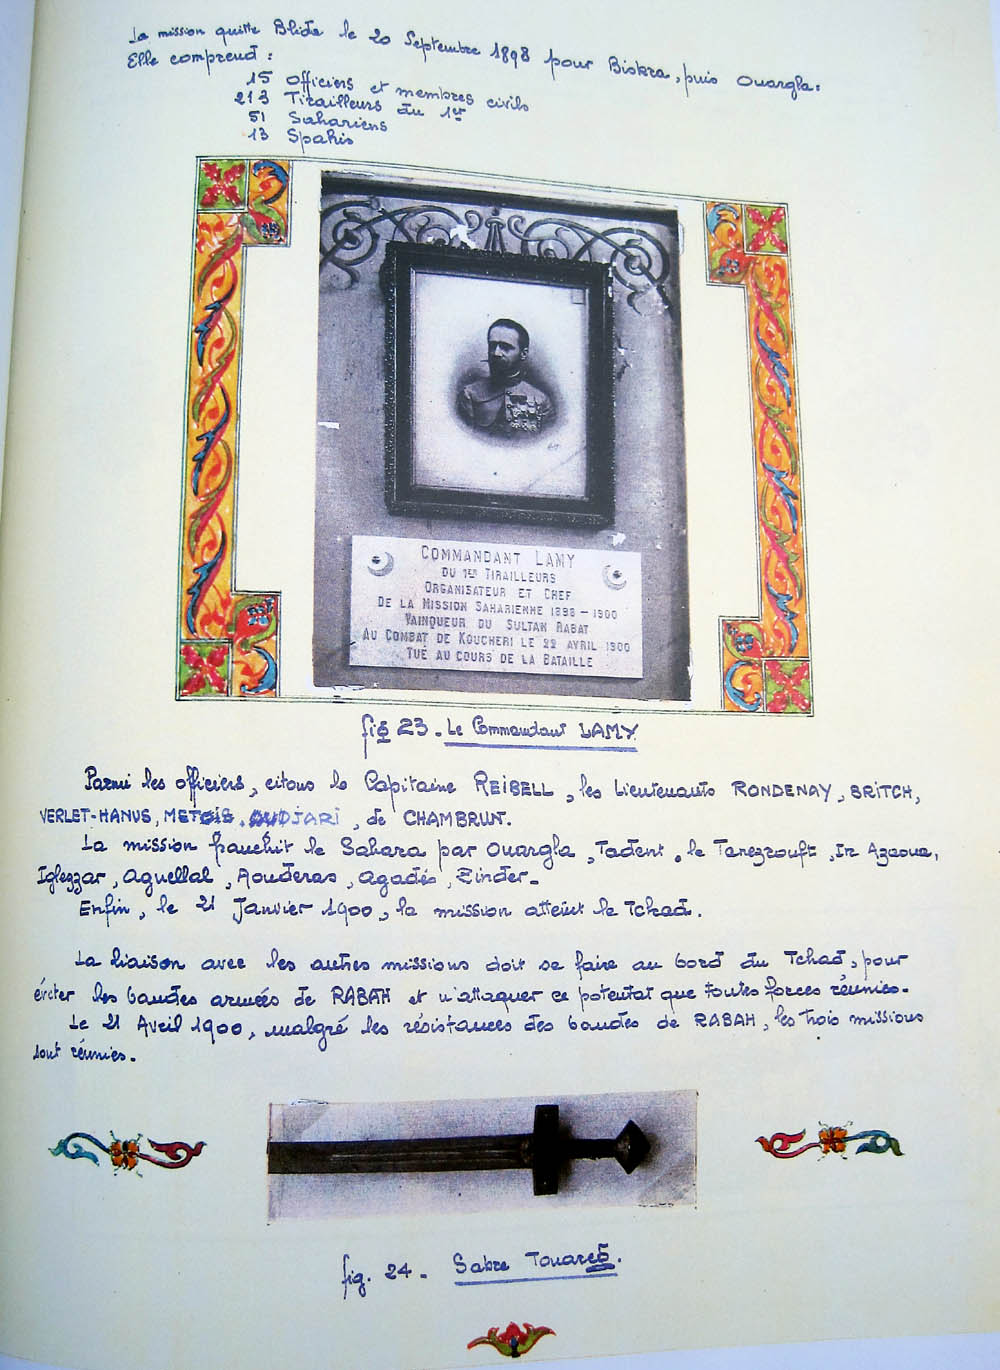 La mission quitte Blida le 20 Septembre 1898 pour Biskra, puis Ouargla.
Elle comprend :
15 Officiers et membres civils
213 Tirailleurs du 1er
51 Sahariens
13 Spahis
COMMANDANT LAMY
DU 1ER TIRAILLEURS
ORGANISATEUR ET CHEF
DE LA MISSION SAHARIENNE 1898-1900
VAINQUEUR DU SULTAN RABAT
AU COMBAT DE KOUCHERI LE 22 AVRIL 1900
TUÉ AU COURS DE LA BATAILLE
fig 23. Le Commandant LAMY
Parmi les officiers, citons le Capitaine REIBELL, les Lieutenants RONDENAY, BRITCH,
VERLET-HANUS, METOIS, OUDJARI, de CHAMBRUN.
La mission franchit le Sahara par Ouargla, Tadent, le Tanezrouft, In Azaoua,
Iglezzar, Aguellal, Aouderas, Agadés, Zinder.
Enfin, le 21 Janvier 1900, la mission atteint le Tchad.
La liaison avec les autres missions doit se faire au bord du Tchad, pour
les bandes armées de RABAH et n'attaquer ce potentat que toutes forces réunies.
Le 21 Avril 1900, malgré les résistances des bandes de RABAH, les trois missions
sont réunies.
fig. 24 - Sabre Touareg.